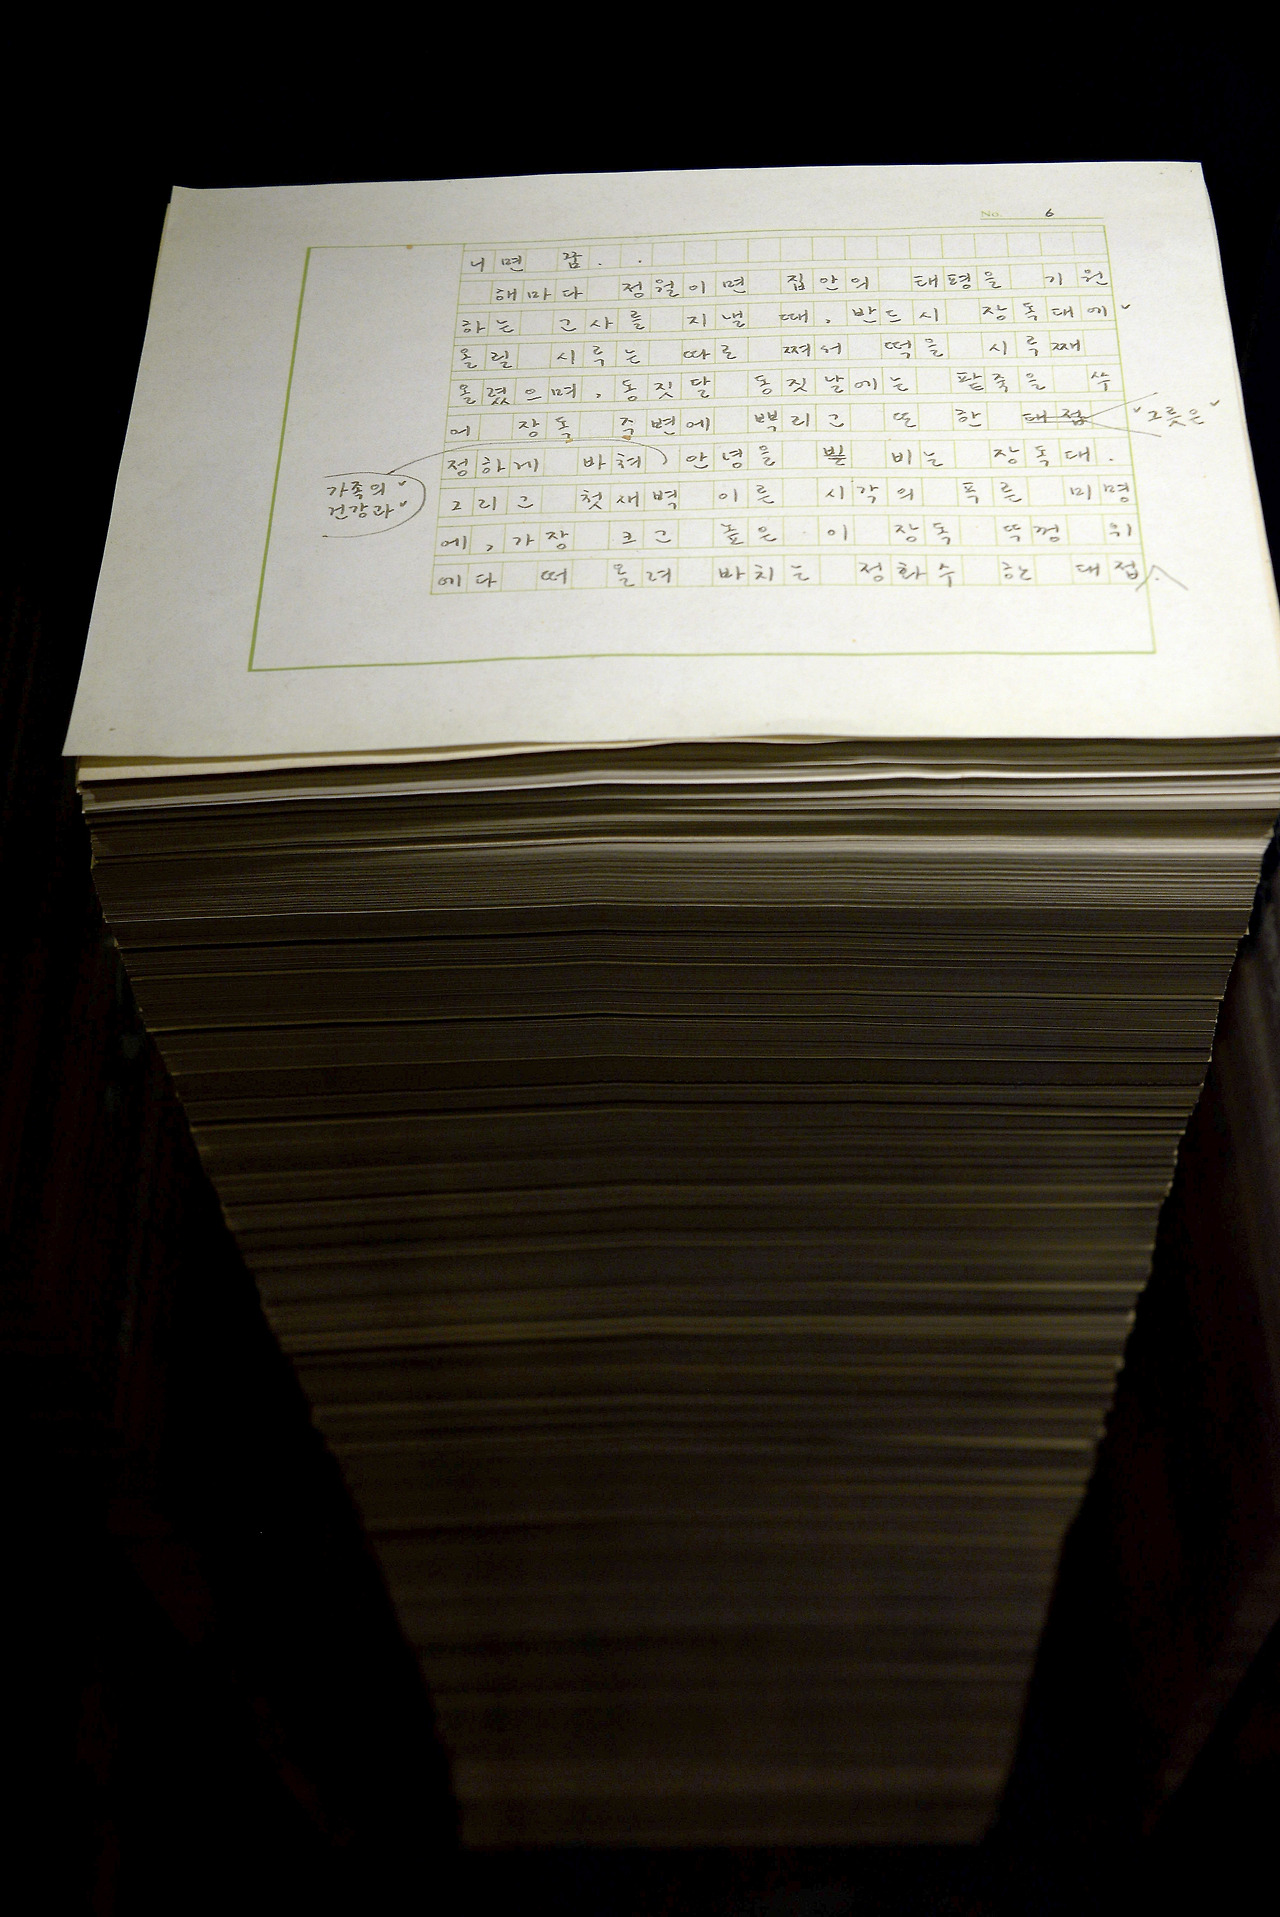 No. 6
니면 꿈..
해마다 정월이면 집안의 태평을 기원
하는 고사를 지낼 때, 반드시 장독대에
올릴 시루는 따로 쪄서 떡을 시루째
올렸으며, 동짓달 동짓날에는 팥죽을 쑤
어 장독 주변에 뿌리고 또 한 대접
그릇은
정하게 바쳐 안녕을 빌 비는 장독대.
가족의
건강과
그리고 첫새벽 이른 시각의 푸른 미명
에, 가장 크고 높은 이 장독 뚜껑 위
에다 떠 올려 바치는 정화수 한 대접